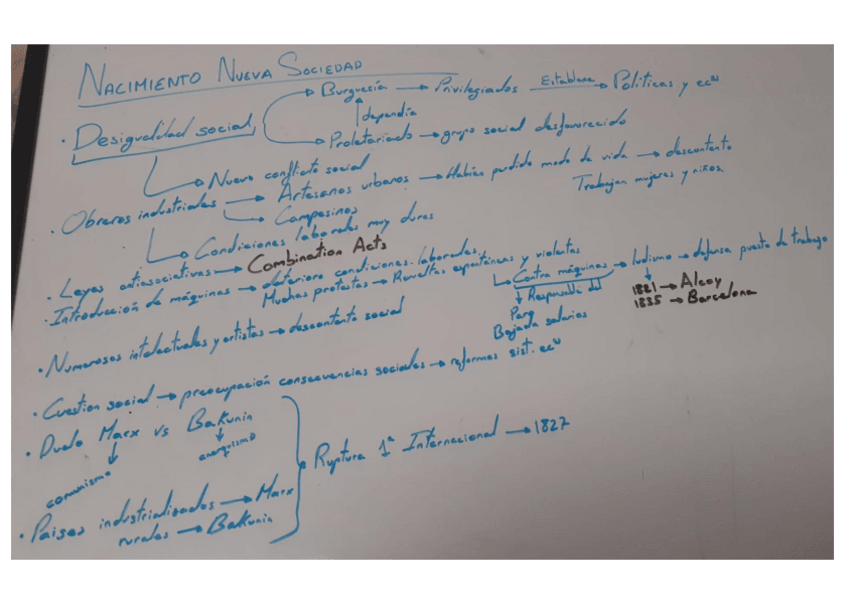 NACIMIENTO NUEVA SOCIEDAD
Burguesía → Privilegiados Establece → Políticas y ecᵃ
↑ dependía
· Desigualdad social
Proletariado → grupo social desfavorecido
→ Nuevo conflicto social
· Obreros industriales → Artesanos urbanos → Habían perdido modo de vida → descontento
→ Campesinos
Trabajan mujeres y niños
→ Condiciones laborales muy duras
· Leyes antiasociativas → Combination Acts
· Introducción de máquinas → deterioro condiciones laborales.
Muchas protestas → Revueltas espontáneas y violentas
→ Contra máquinas → ludismo → defensa puesto de trabajo
↓ Responsable del
Paro
Bajada salarios
↓
1821 → Alcoy
1835 → Barcelona
· Numerosos intelectuales y artistas → descontento social
· Cuestion social → preocupación consecuencias sociales → reformas sist. ecᵃ
· Duelo Marx vs Bakunin
↓ comunismo
↓ anarquismo
Ruptura 1ª Internacional → 1827
· Paises industrializados → Marx
rurales → Bakunin